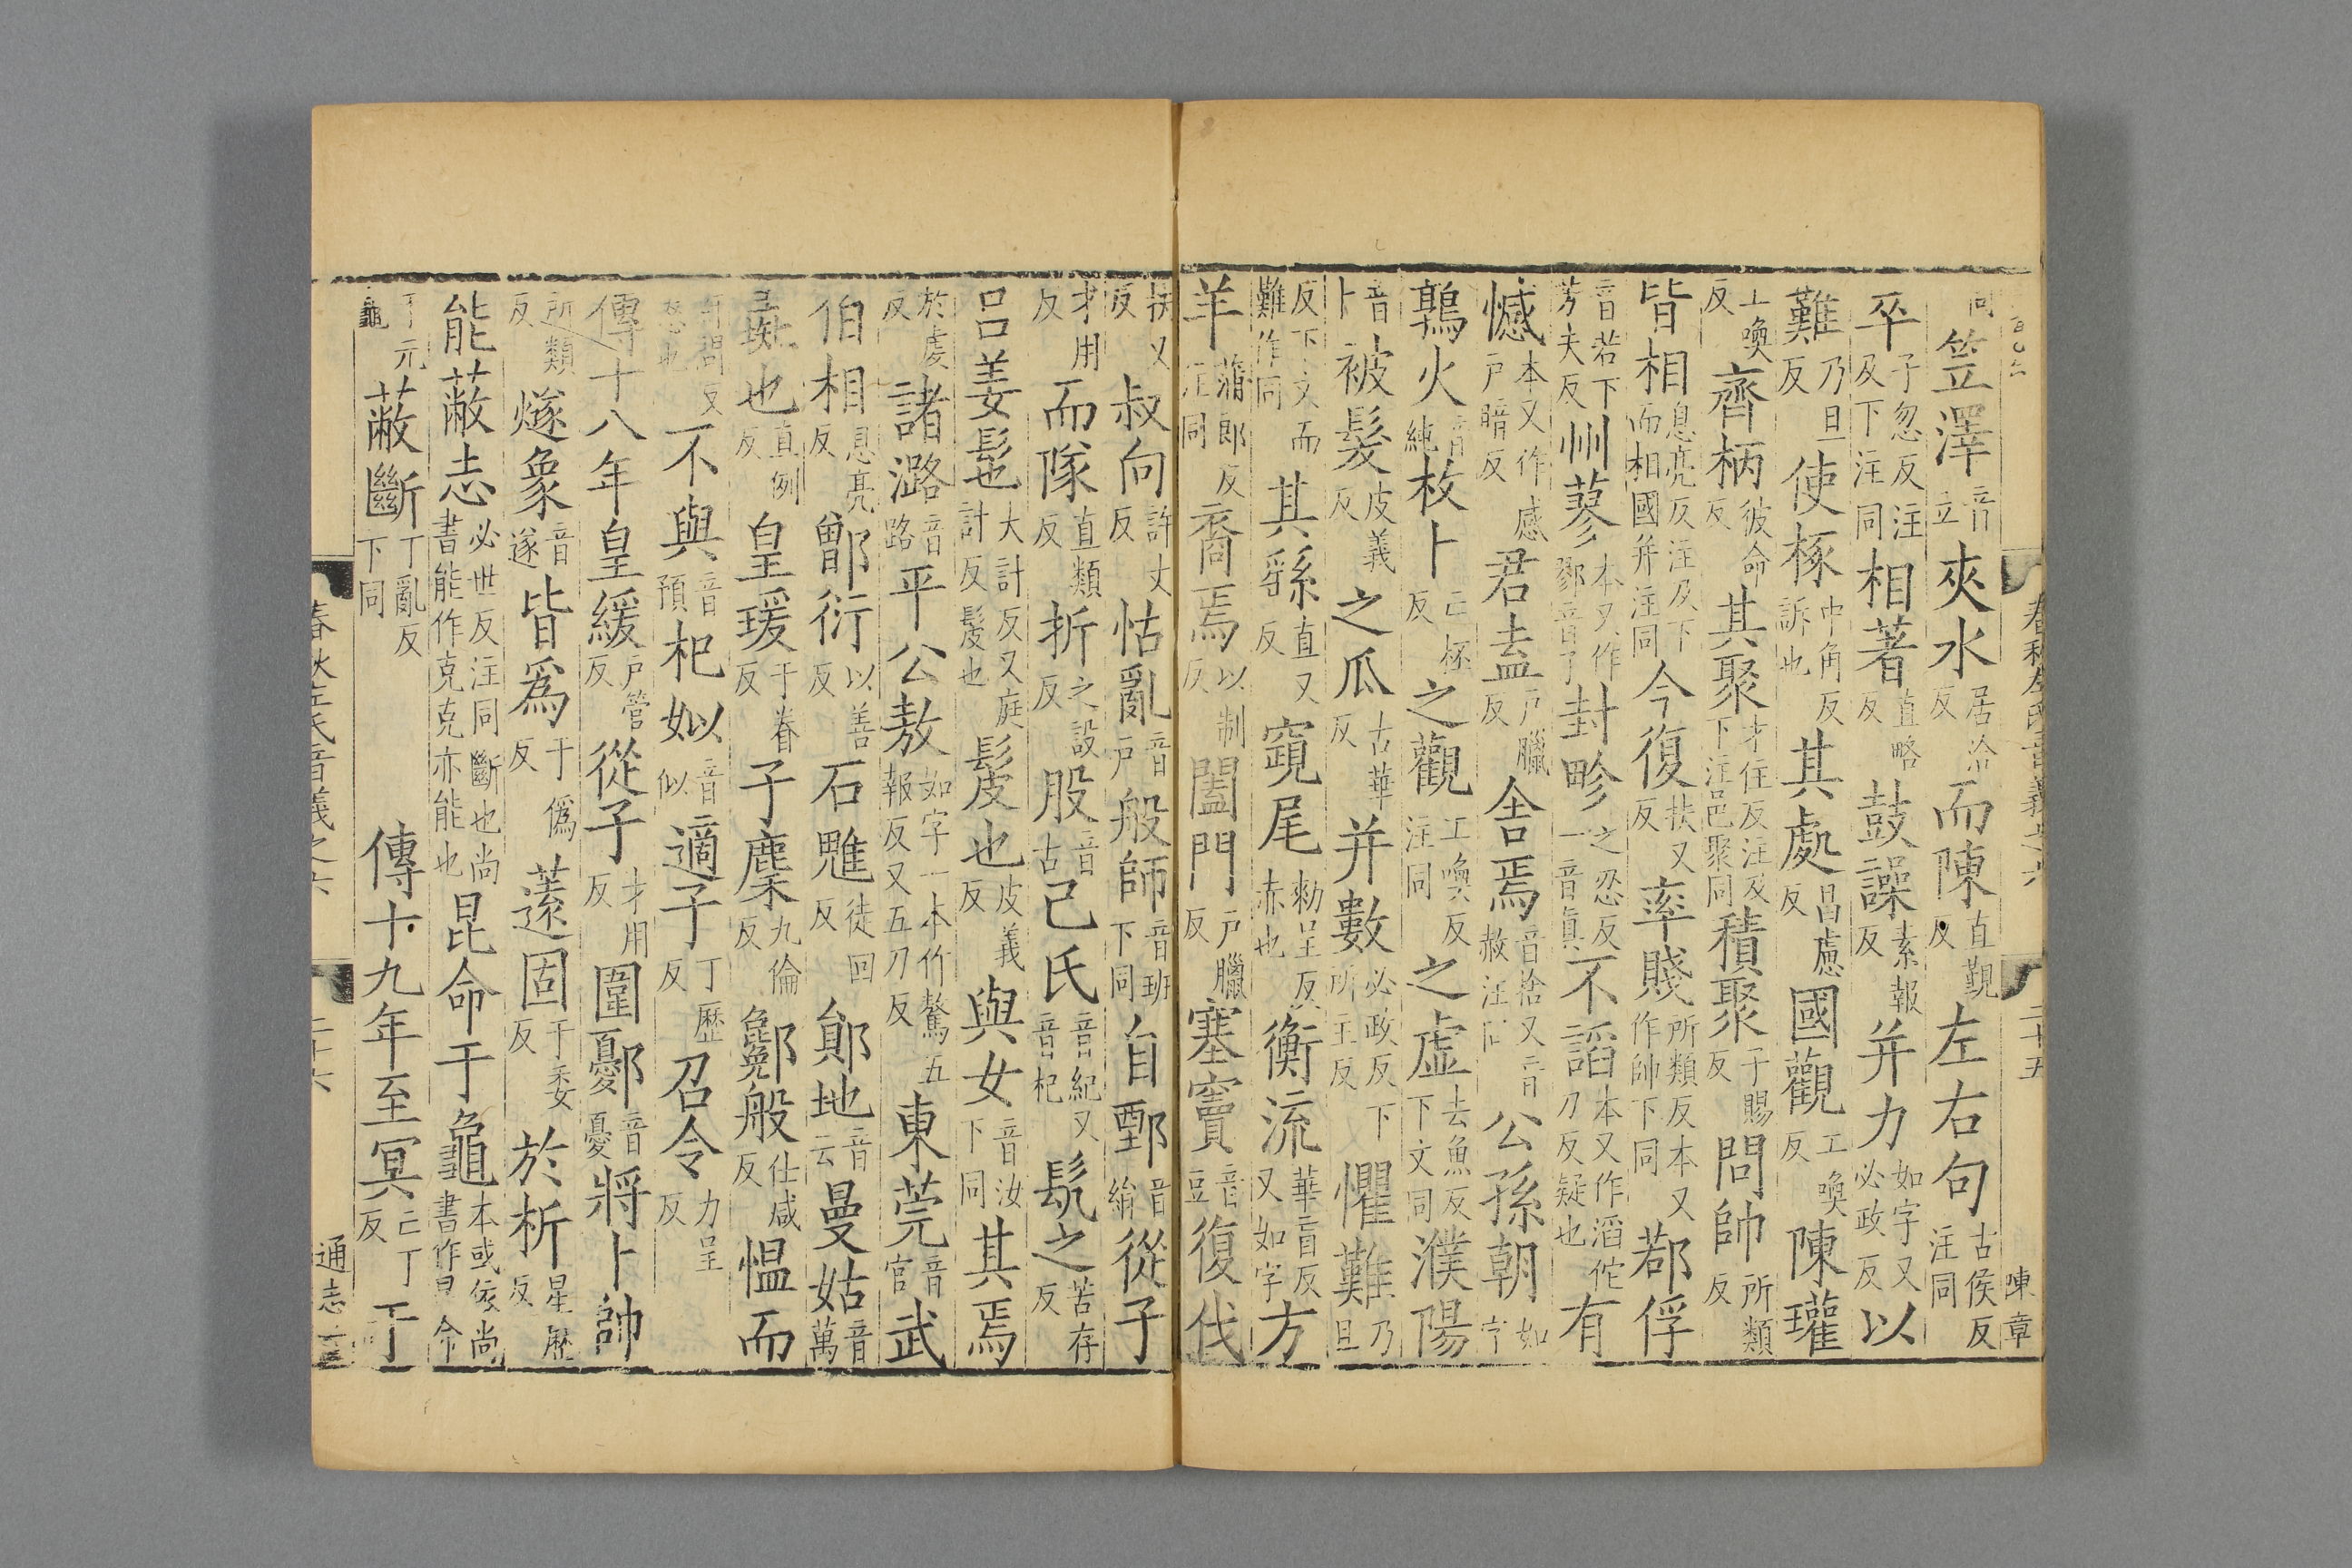 春秋左氏音義之六 二十五 陳章
同笠澤音立夾水居洽反而陳直覲反左右句古侯反注同
卒子忽反注及下注同相著直略反鼓譟素報反并力如字又必政反以
難乃旦反使椓中角反訴也其處昌慮反國觀工喚反陳瓘
工喚反齊柄彼命反其聚才住反注及下注邑聚同積聚子賜反問帥所類反
皆相息亮反注及下而相國并注同今復扶又反率賤所類反本又作帥下同鄀俘
音若下芳夫反州蓼本又作鄝音了封畛之忍反一音真不謟本又作滔佗刀反疑也有
憾本又作感戶暗反君盍戶臘反舍焉音捨又音赦注同公孫朝如字
鶉火音純枚卜亡杯反之觀工喚反注同之虛去魚反下文同濮陽
音卜被髮皮義反之瓜古華反并數必政反下所主反懼難乃旦
反下文而難作同其繇直又反窺尾勑呈反赤也衡流華盲反又如字方
羊蒲郎反注同裔焉以制反闔門戶臘反塞竇音豆復伐
扶又反叔向許丈反怙亂音戶般師音班下同自鄄音絹從子
才用反而隊直類反折之設反股音古己氏音紀又音杞髡之苦存反
呂姜髢大計反又庭計反髲也髲也皮義反與女音汝下同其焉
於虔反諸潞音路平公敖如字一本作驁五報反又五刀反東莞音官武
伯相息亮反鄫衍以善反石魋徒回反鄖地音云曼姑音萬
㠱也直例反皇瑗于眷反子麇九倫反鄤般仕咸反慍而
不與音預杞姒音似適子丁歷反召令力呈反
傳十八年皇緩戶管反從子才用反圍鄾音憂將卜帥
所類反燧象音遂皆爲于僞反薳固于委反於析星歷反
能蔽志必世反注同斷也尚書能作克克亦能也昆命于龜本或依尚書作昆命
于元龜蔽斷丁亂反下同 傳十九年至冥亡丁反于
春秋左氏音義之六 二十六 通志堂